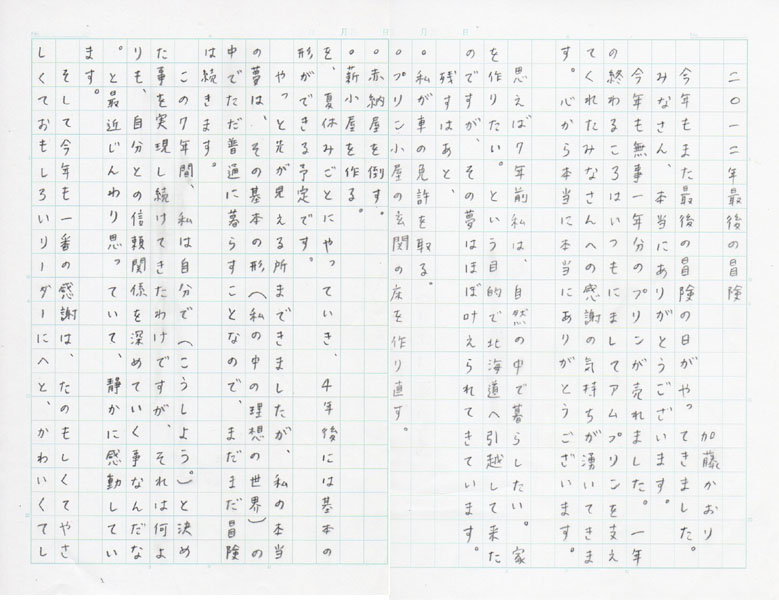 二〇一二年最後の冒険
加藤かおり
今年もまた最後の冒険の日がやってきました。
みなさん、本当にありがとうございます。
今年も無事一年分のプリンが売れました。一年
の終わるころはいつもにましてアムプリンを支え
てくれたみなさんへの感謝の気持ちが湧いてきま
す。心から本当に本当にありがとうございます。
思えば7年前私は、自然の中で暮らしたい。家
を作りたい。という目的で北海道へ引越して来た
のですが、その夢はほぼ叶えられてきています。
残すはあと、
。私が車の免許を取る。
。プリン小屋の玄関の床を作り直す。
。赤納屋を倒す。
。薪小屋を作る。
を、夏休みごとにやっていき、4年後には基本の
形ができる予定です。
やっと先が見える所まできましたが、私の本当
の夢は、その基本の形（私の中の理想の世界）の
中でただ普通に暮らすことなので、まだまだ冒険
は続きます。
この7年間、私は自分で（こうしよう。）と決め
た事を実現し続けてきたわけですが、それは何よ
りも、自分との信頼関係を深めていく事なんだな
。と最近じんわり思っていて、静かに感動してい
ます。
そして今年も一番の感謝は、たのもしくてやさ
しくておもしろいリーダーにへと、かわいくてし